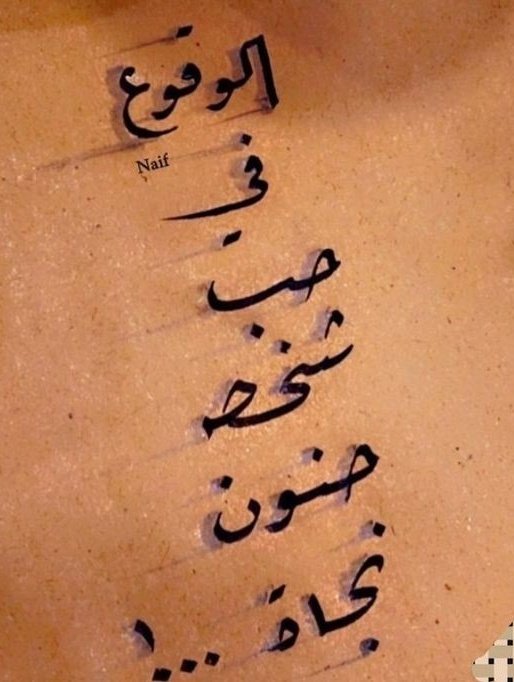 الوقوع
Naif
في
حب
شخص
حنون
نجاة ...!